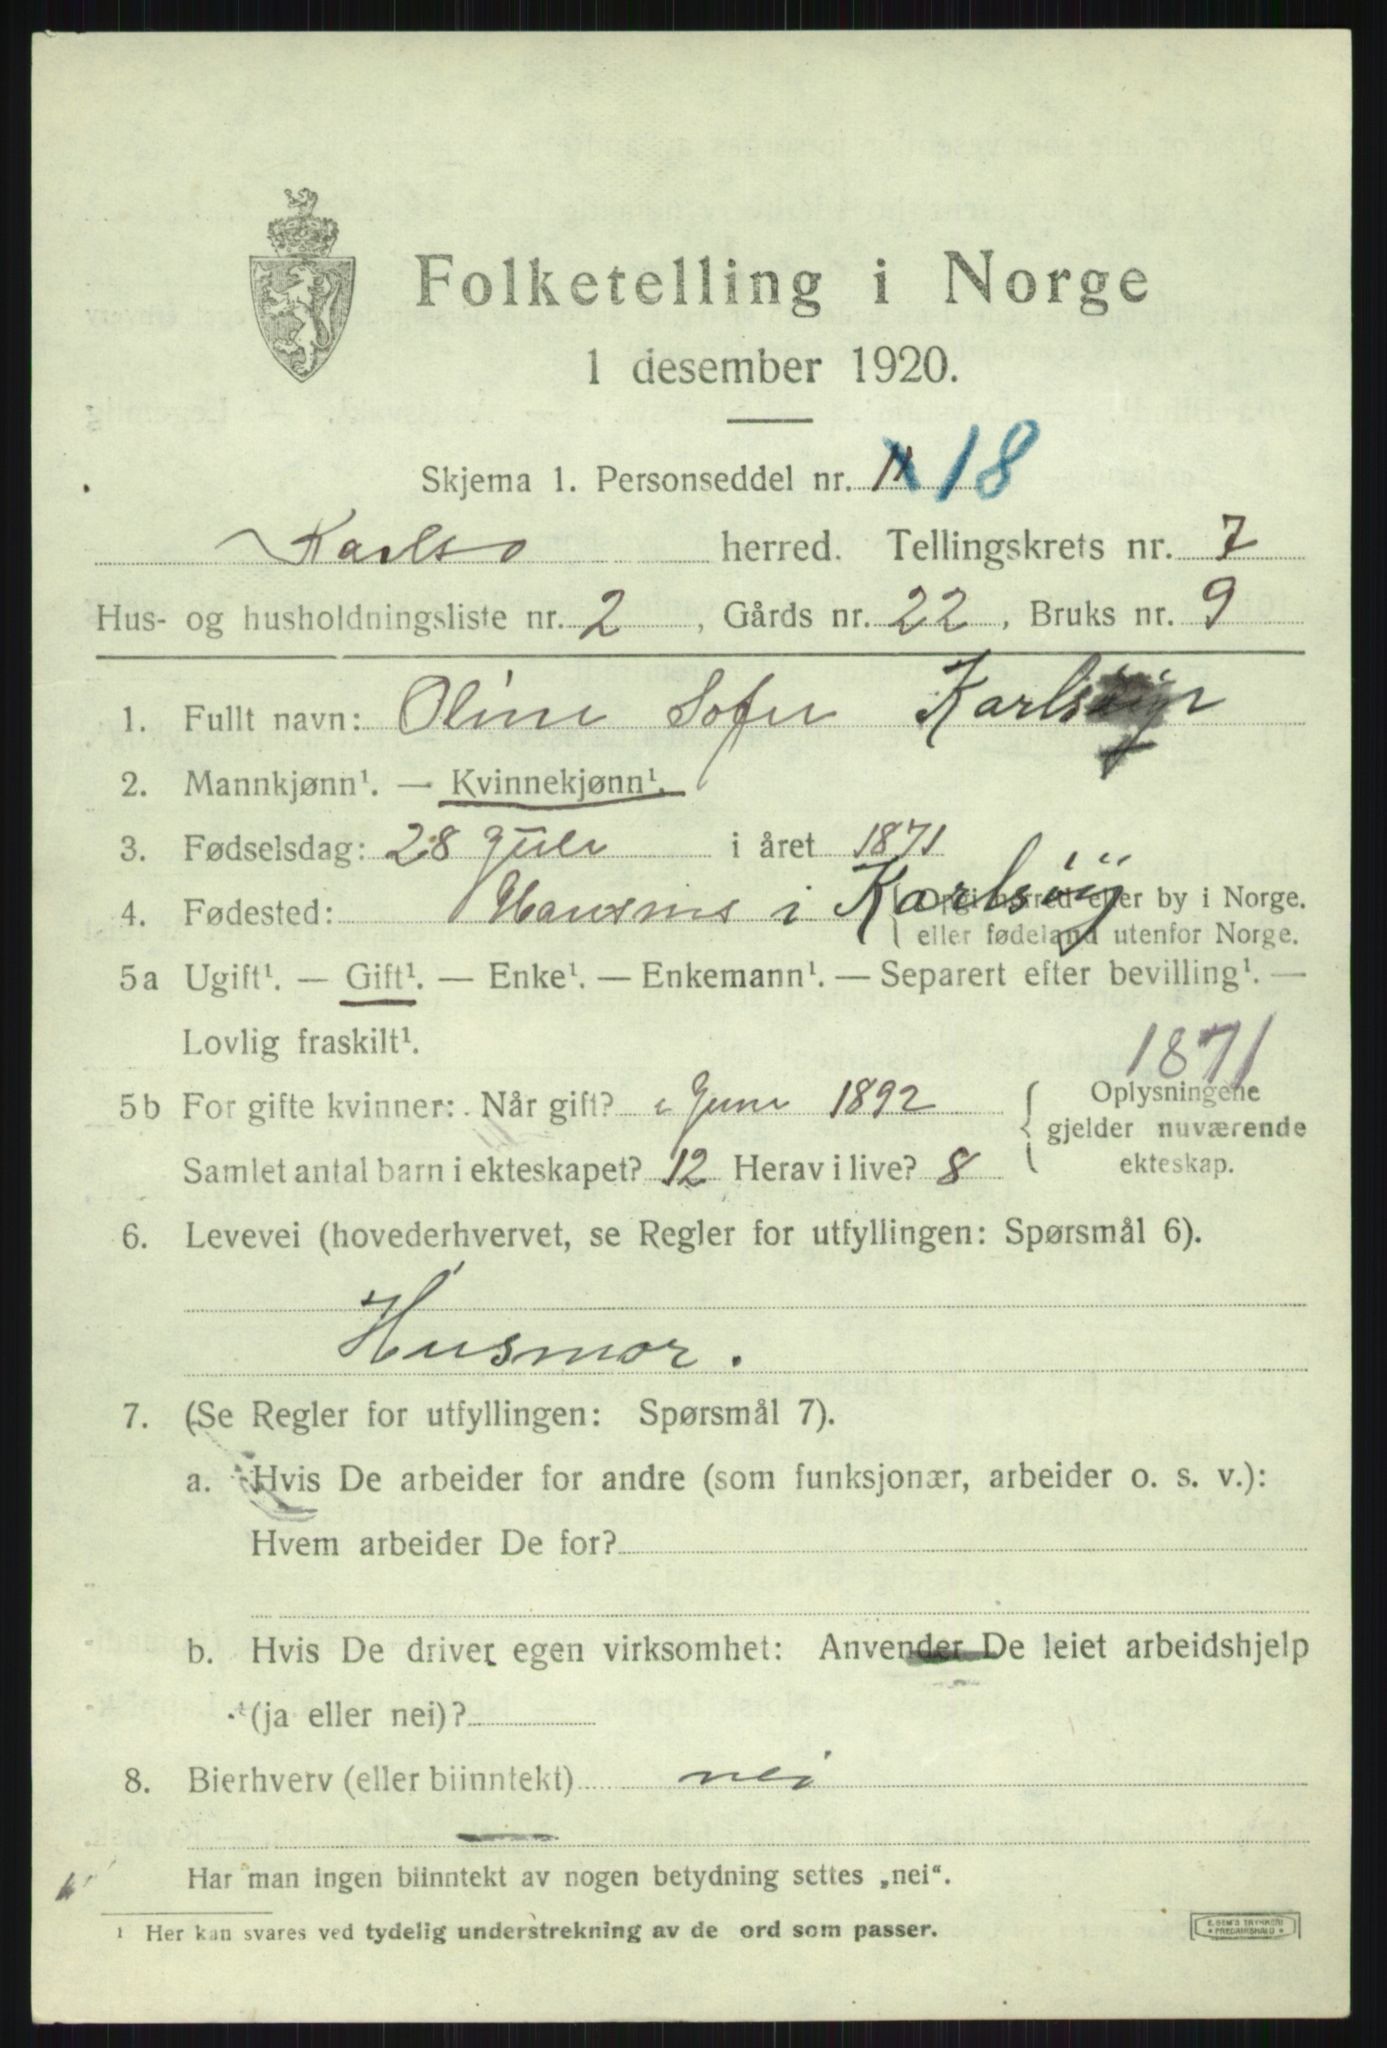 Folketelling i Norge
1 desember 1920.
Skjema 1. Personseddel nr. 18
Karlsø herred. Tellingskrets nr. 7
Hus- og husholdningsliste nr. 2, Gårds nr. 22, Bruks nr. 9
1. Fullt navn: Oline Sofie
2. Mannkjønn¹. — Kvinnekjønn¹.
3. Fødselsdag: 28 Juli i året 1871
4. Fødested: i Karlsöy (Opgi herred eller by i Norge.
eller fødeland utenfor Norge.
5a Ugift¹. — Gift¹. — Enke¹. — Enkemann¹. — Separert efter bevilling¹. —
Lovlig fraskilt¹.
1871
5b For gifte kvinner: Når gift? i Juni 1892 Oplysningene
gjelder nuværende
Samlet antal barn i ekteskapet? 12 Herav i live? 8 ekteskap.
6. Levevei (hovederhvervet, se Regler for utfyllingen: Spørsmål 6).
Husmor.
7. (Se Regler for utfyllingen: Spørsmål 7).
a. Hvis De arbeider for andre (som funksjonær, arbeider o. s. v.):
Hvem arbeider De for?
b. Hvis De driver egen virksomhet: Anvender De leiet arbeidshjelp
(ja eller nei)?
8. Bierhverv (eller biinntekt) nei
Har man ingen biinntekt av nogen betydning settes „nei“.
¹ Her kan svares ved tydelig understrekning av de ord som passer.